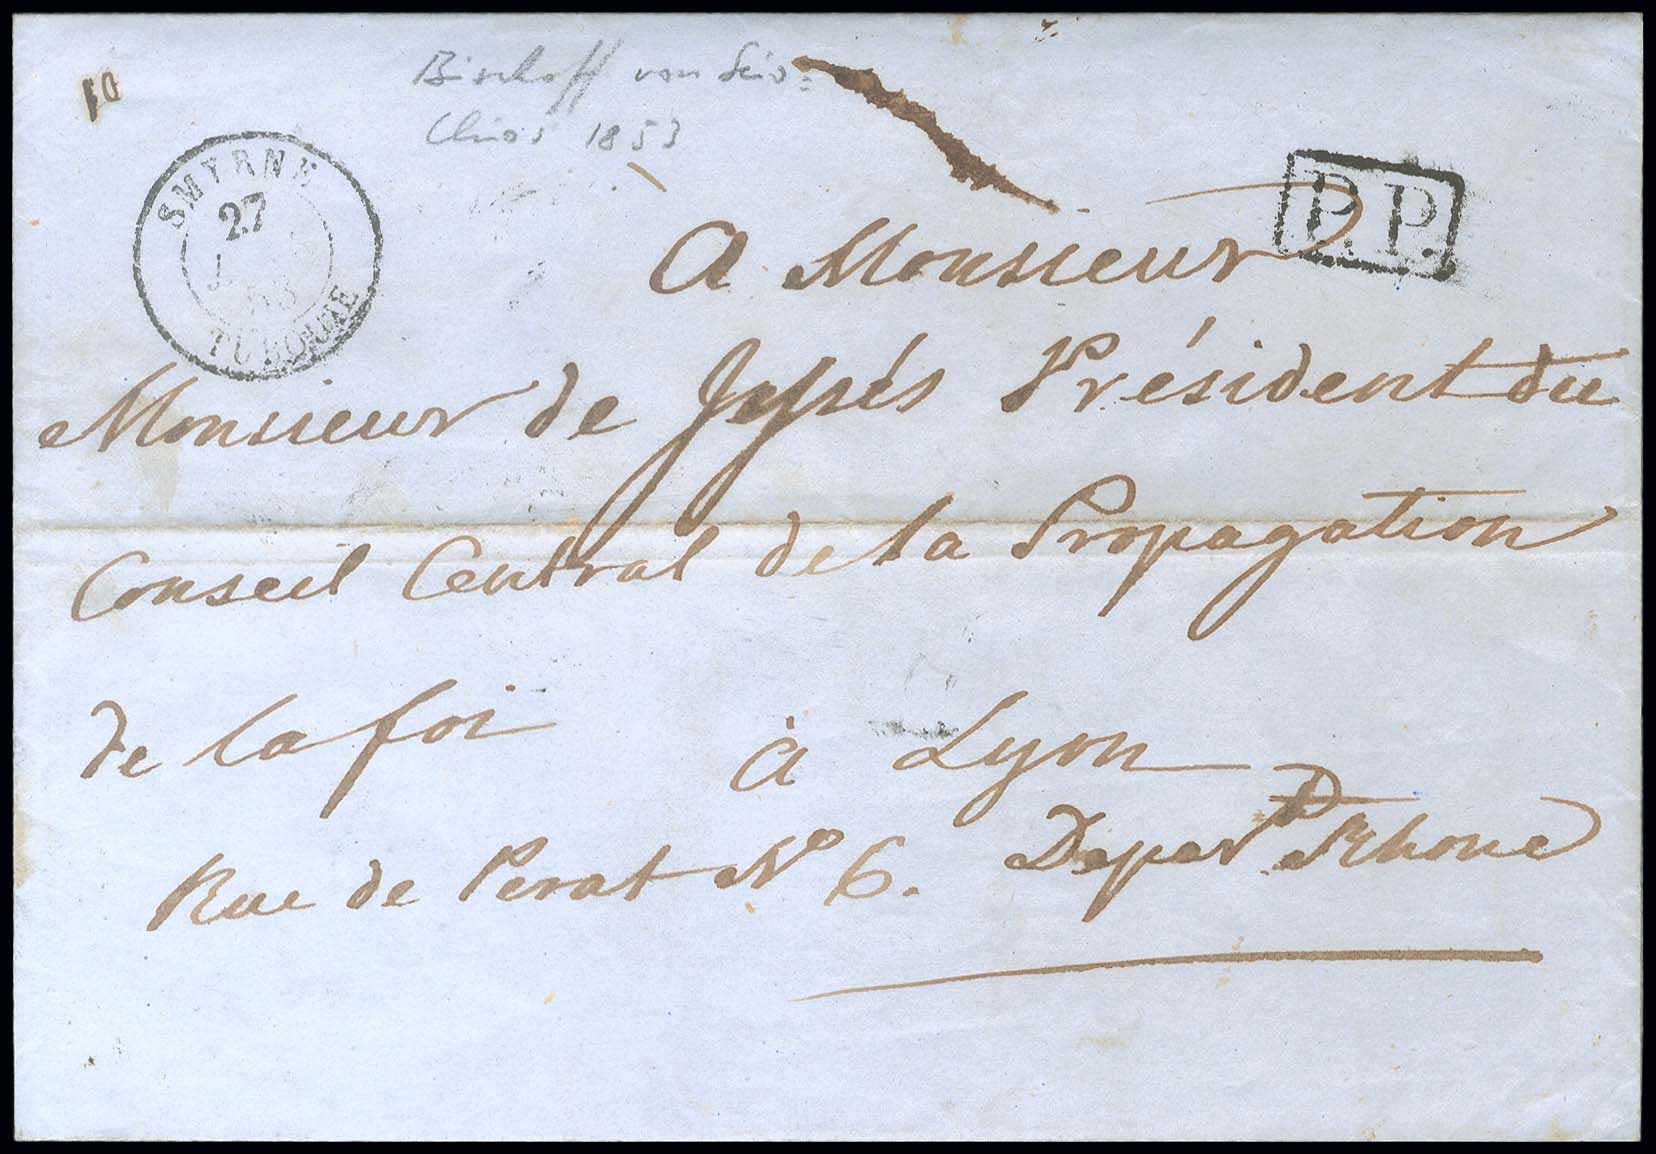 Bischoff von Scio =
Chios 1853
SMYRNE
27
53
TURQUIE
P.P.
A Monsieur
Monsieur de Jessés Président du
Conseil Central de la Propagation
de la foi à Lyon
Rue de Perat Nº 6. Depart Rhone